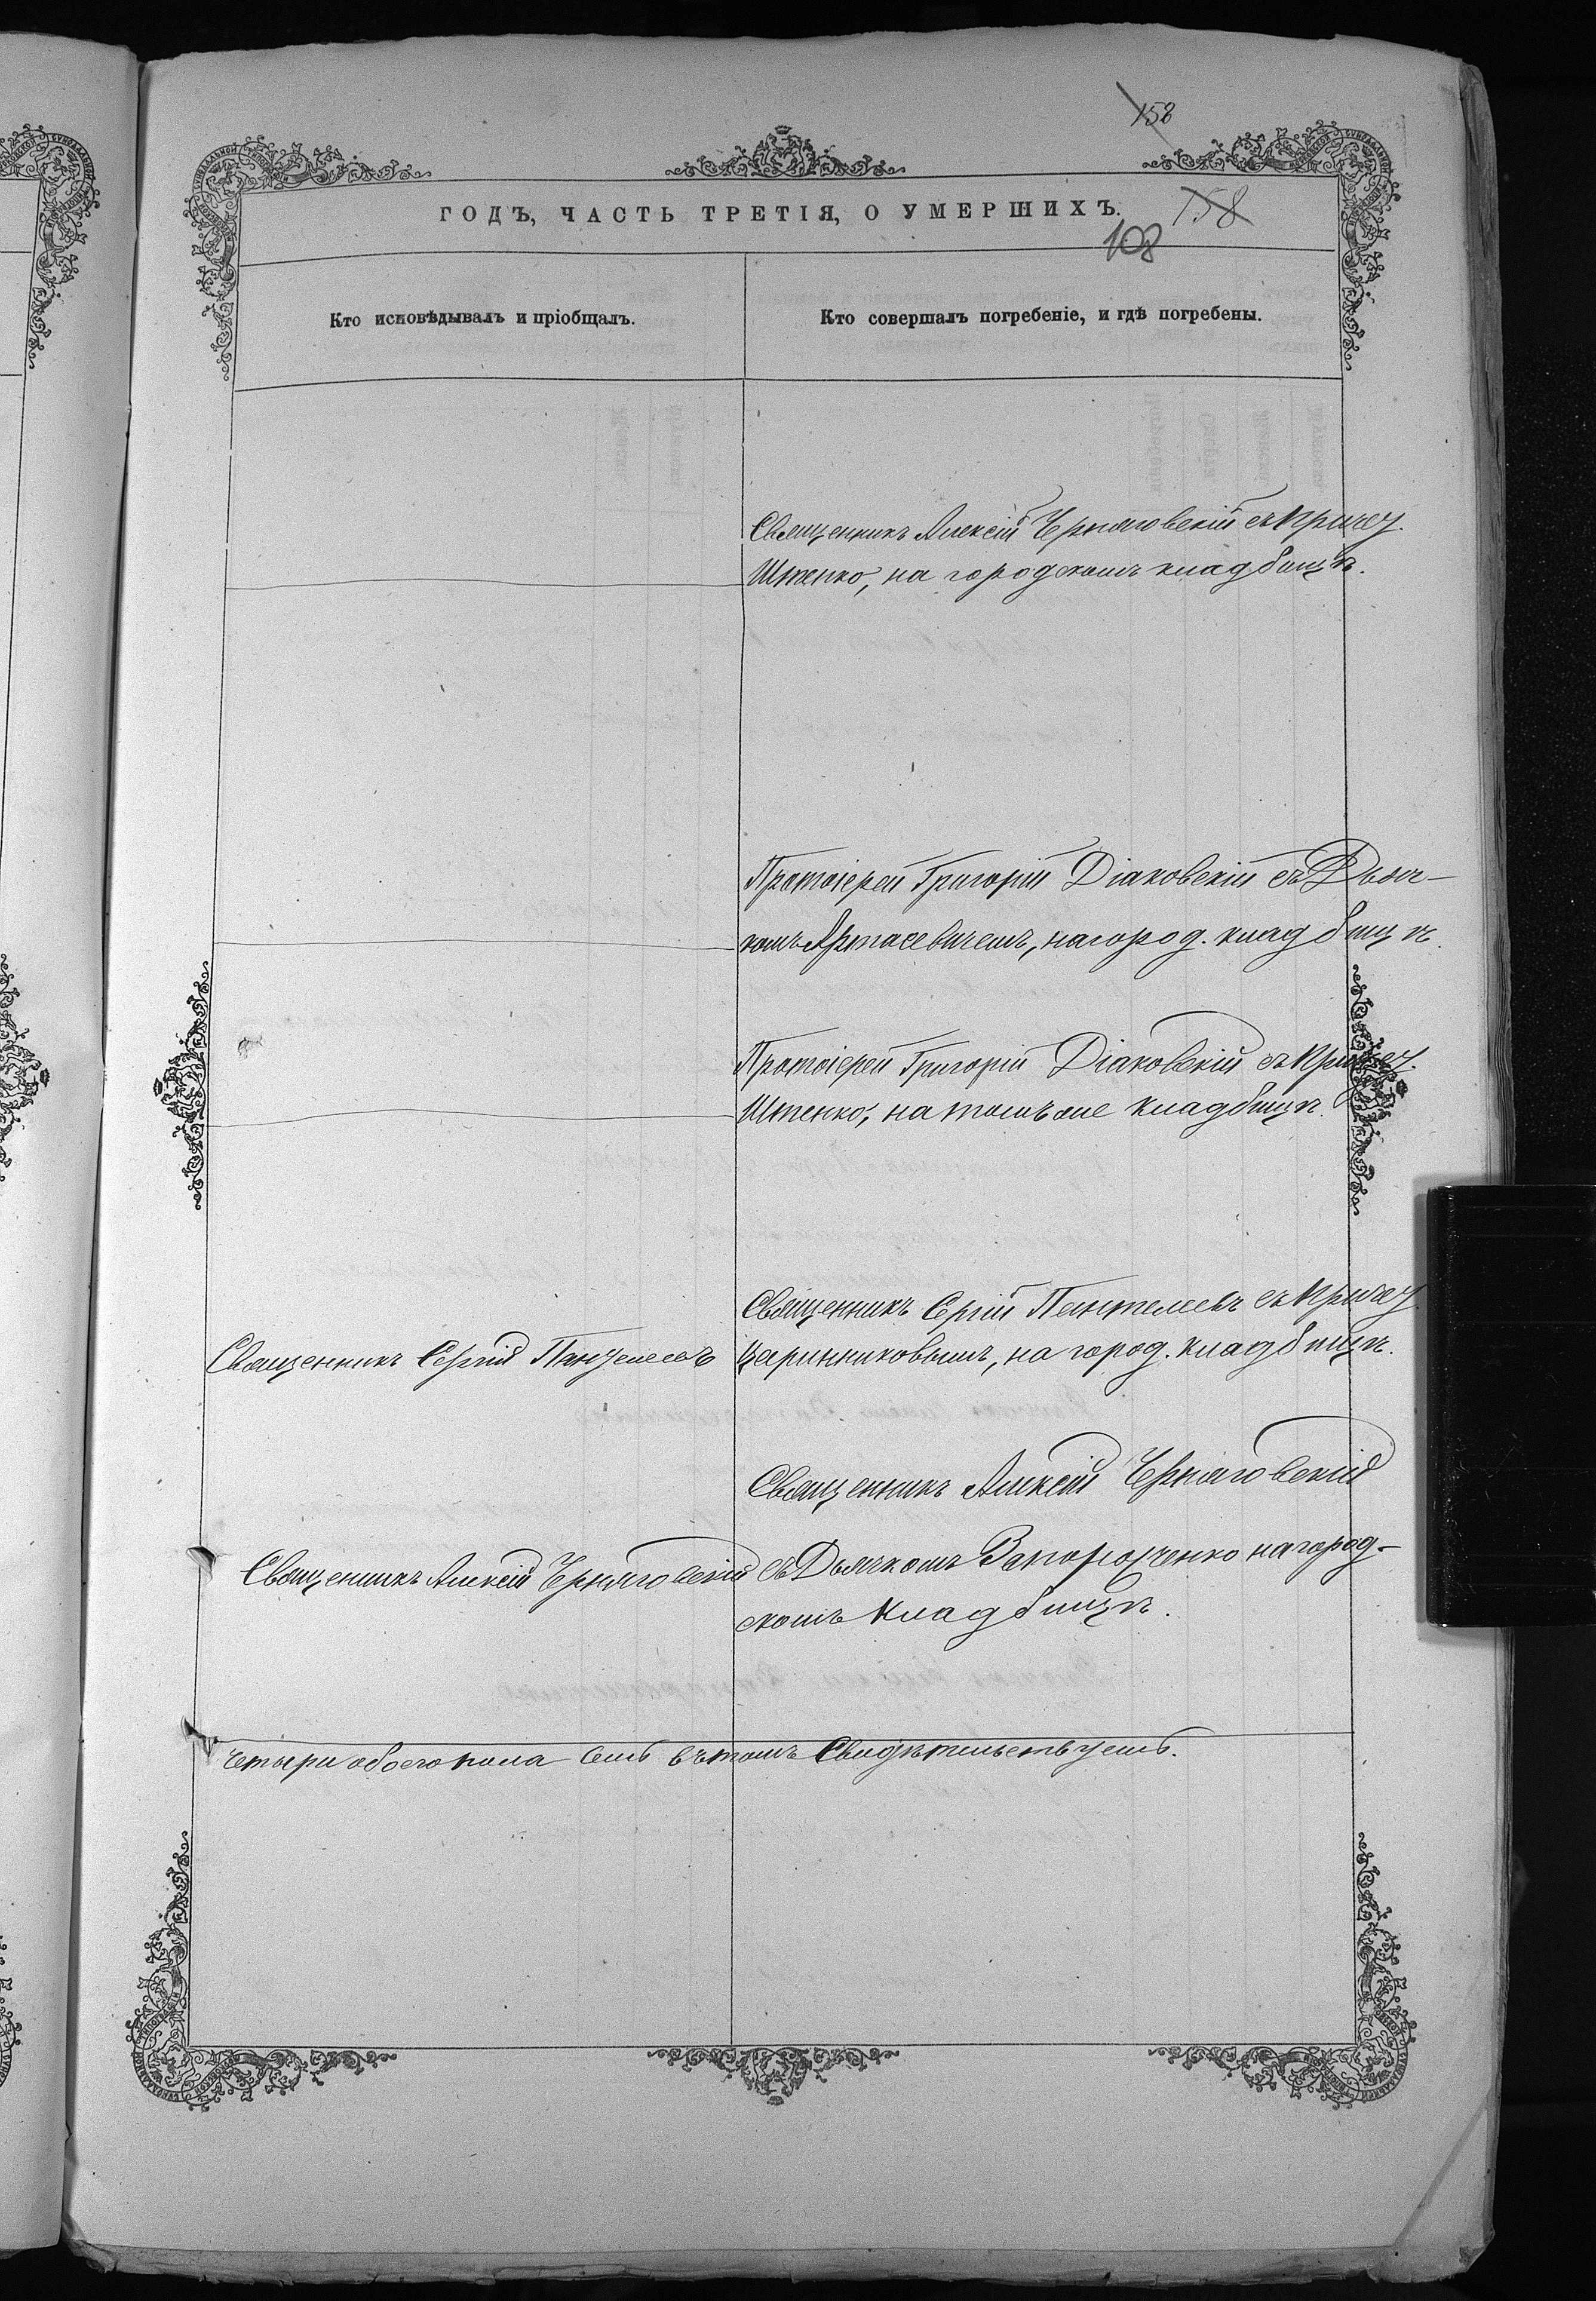 158
ГОДЪ, ЧАСТЬ ТРЕТІЯ, О УМЕРШИХЪ.
158
108
Кто исповѣдывалъ и пріобщалъ.
Кто совершалъ погребеніе, и гдѣ погребены.
Священникъ Алексій Черняговскій съ Причет.
Штенко, на городскомъ кладбищѣ.
Протоіерей Григорій Діаковскій съ Дьяч-
комъ Артасевичемъ, на город. кладбищѣ.
Протоіерей Григорій Діаковскій съ Причет.
Штенко, на томъ же кладбищѣ.
Священникъ Сергій Пантелеевъ
Священникъ Сергій Пантелеевъ съ Причет.
Царинниковымъ, на город. кладбищѣ.
Священникъ Алексій Черняговскій
Священникъ Алексій Черняговскій
съ Дьячкомъ Запорожченко на город-
скомъ кладбищѣ.
четыри обоего пола семь въ томъ Свидѣтельствуемъ.